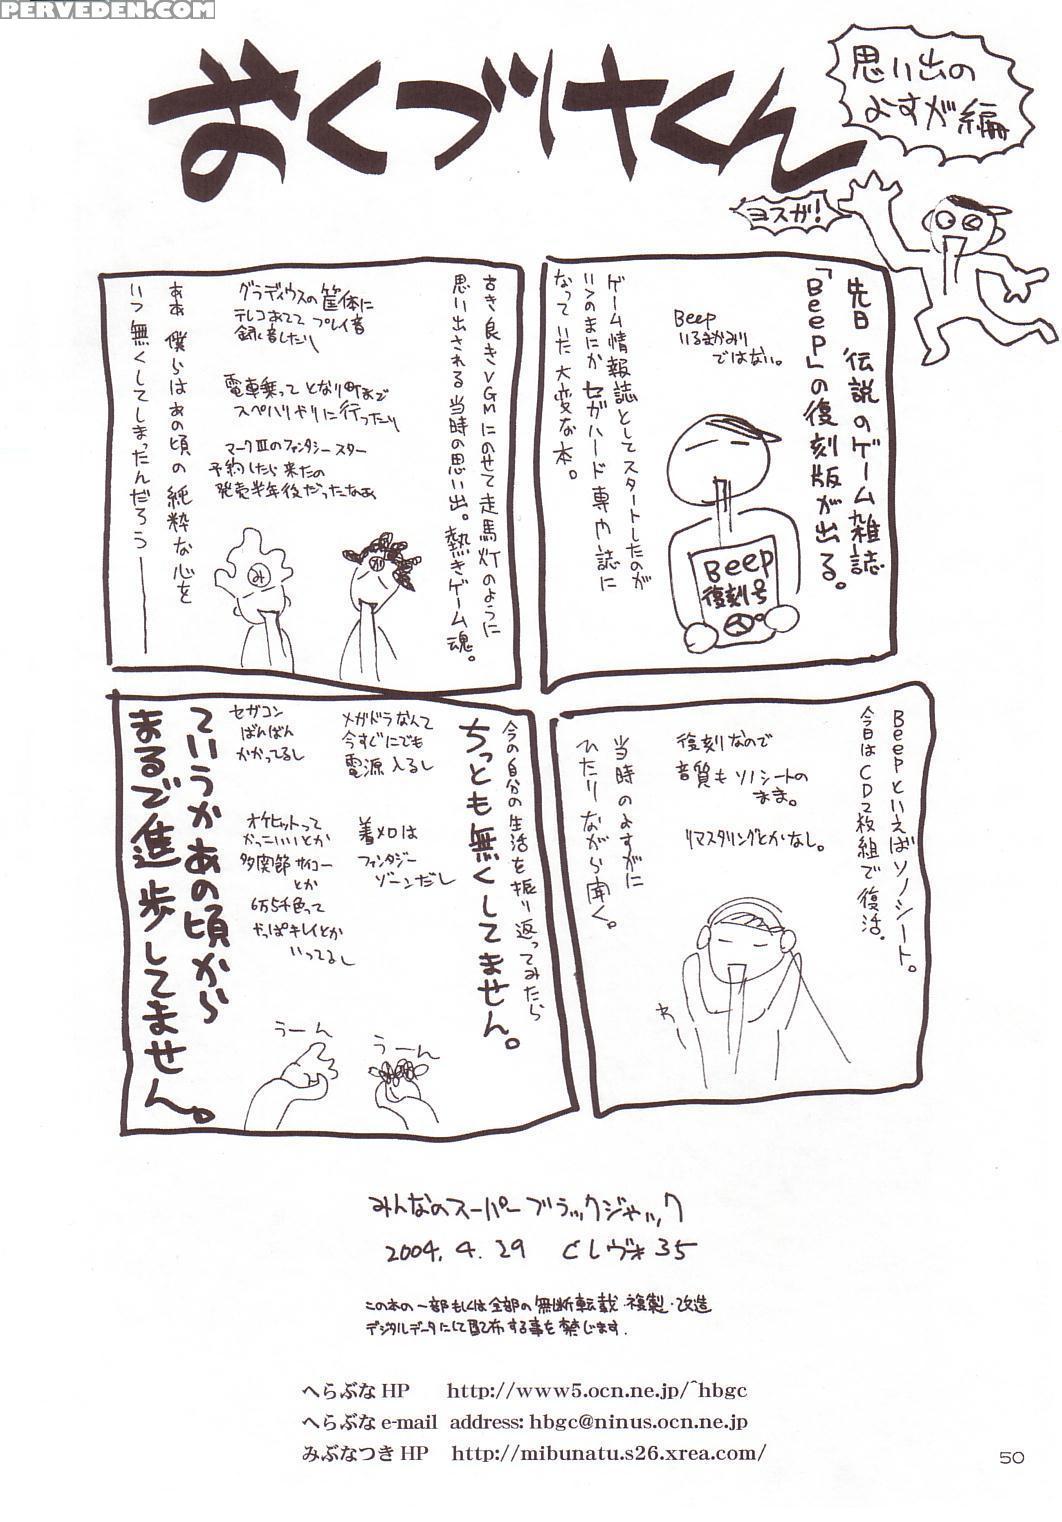 PERVEDEN.COM
おくづけくん
思い出の
よすが編
ヨスガ!
先日 伝説のゲーム雑誌
「Beep」の復刻版が出る。
Beep
いるまかみり
ではない。
ゲーム情報誌としてスタートしたのが
いつのまにか セガハード専門誌に
なっていた大変な本。
Beep
復刻号
古き良きVGMにのせて走馬灯のように
思い出される当時の思い出。熱きゲーム魂。
グラディウスの筐体に
テレコあてて プレイ音
録音したり
電車乗って となり町まで
スペハリ ドリに行ったり
マークⅢのファンタシースター
予約したら来たの
発売半年後だったなぁ
ああ 僕らはあの頃の純粋な心を
いつ無くしてしまったんだろうー
み
み
Beepといえばソノシート。
今日はCD2枚組で復活。
復刻なので
音質もソノシートの
まま。
リマスタリングとかなし。
当時のよすがに
ひたりながら聞く。
今の自分の生活を振り返ってみたら
ちっとも無くしてません。
メガドラなんて
今すぐにでも
電源入るし
着メロは
ファンタジー
ゾーンだし
セガコン
ばんばん
かかってるし
オケヒットって
かっこいいとか
多関節サイコー
とか
6万5千色って
やっぱキレイとか
いってるし
ていうかあの頃から
まるで進歩してません。
うーん
うーん
みんなのスーパーブラックジャック
2004.4.29 Cレヴォ35
この本の一部もしくは全部の無断転載・複製・改造
デジタルデータにして配布する事を禁じます.
へらぶなHP http://www5.ocn.ne.jp/~hbgc
へらぶな e-mail address: hbgc@ninus.ocn.ne.jp
みぶなつきHP http://mibunatu.s26.xrea.com/
50